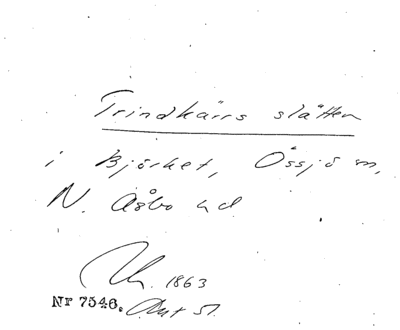 Trindkärrs slätten
i Björket, Össjö sn,
N. Åsbo hd.
1863
Nr 7546.